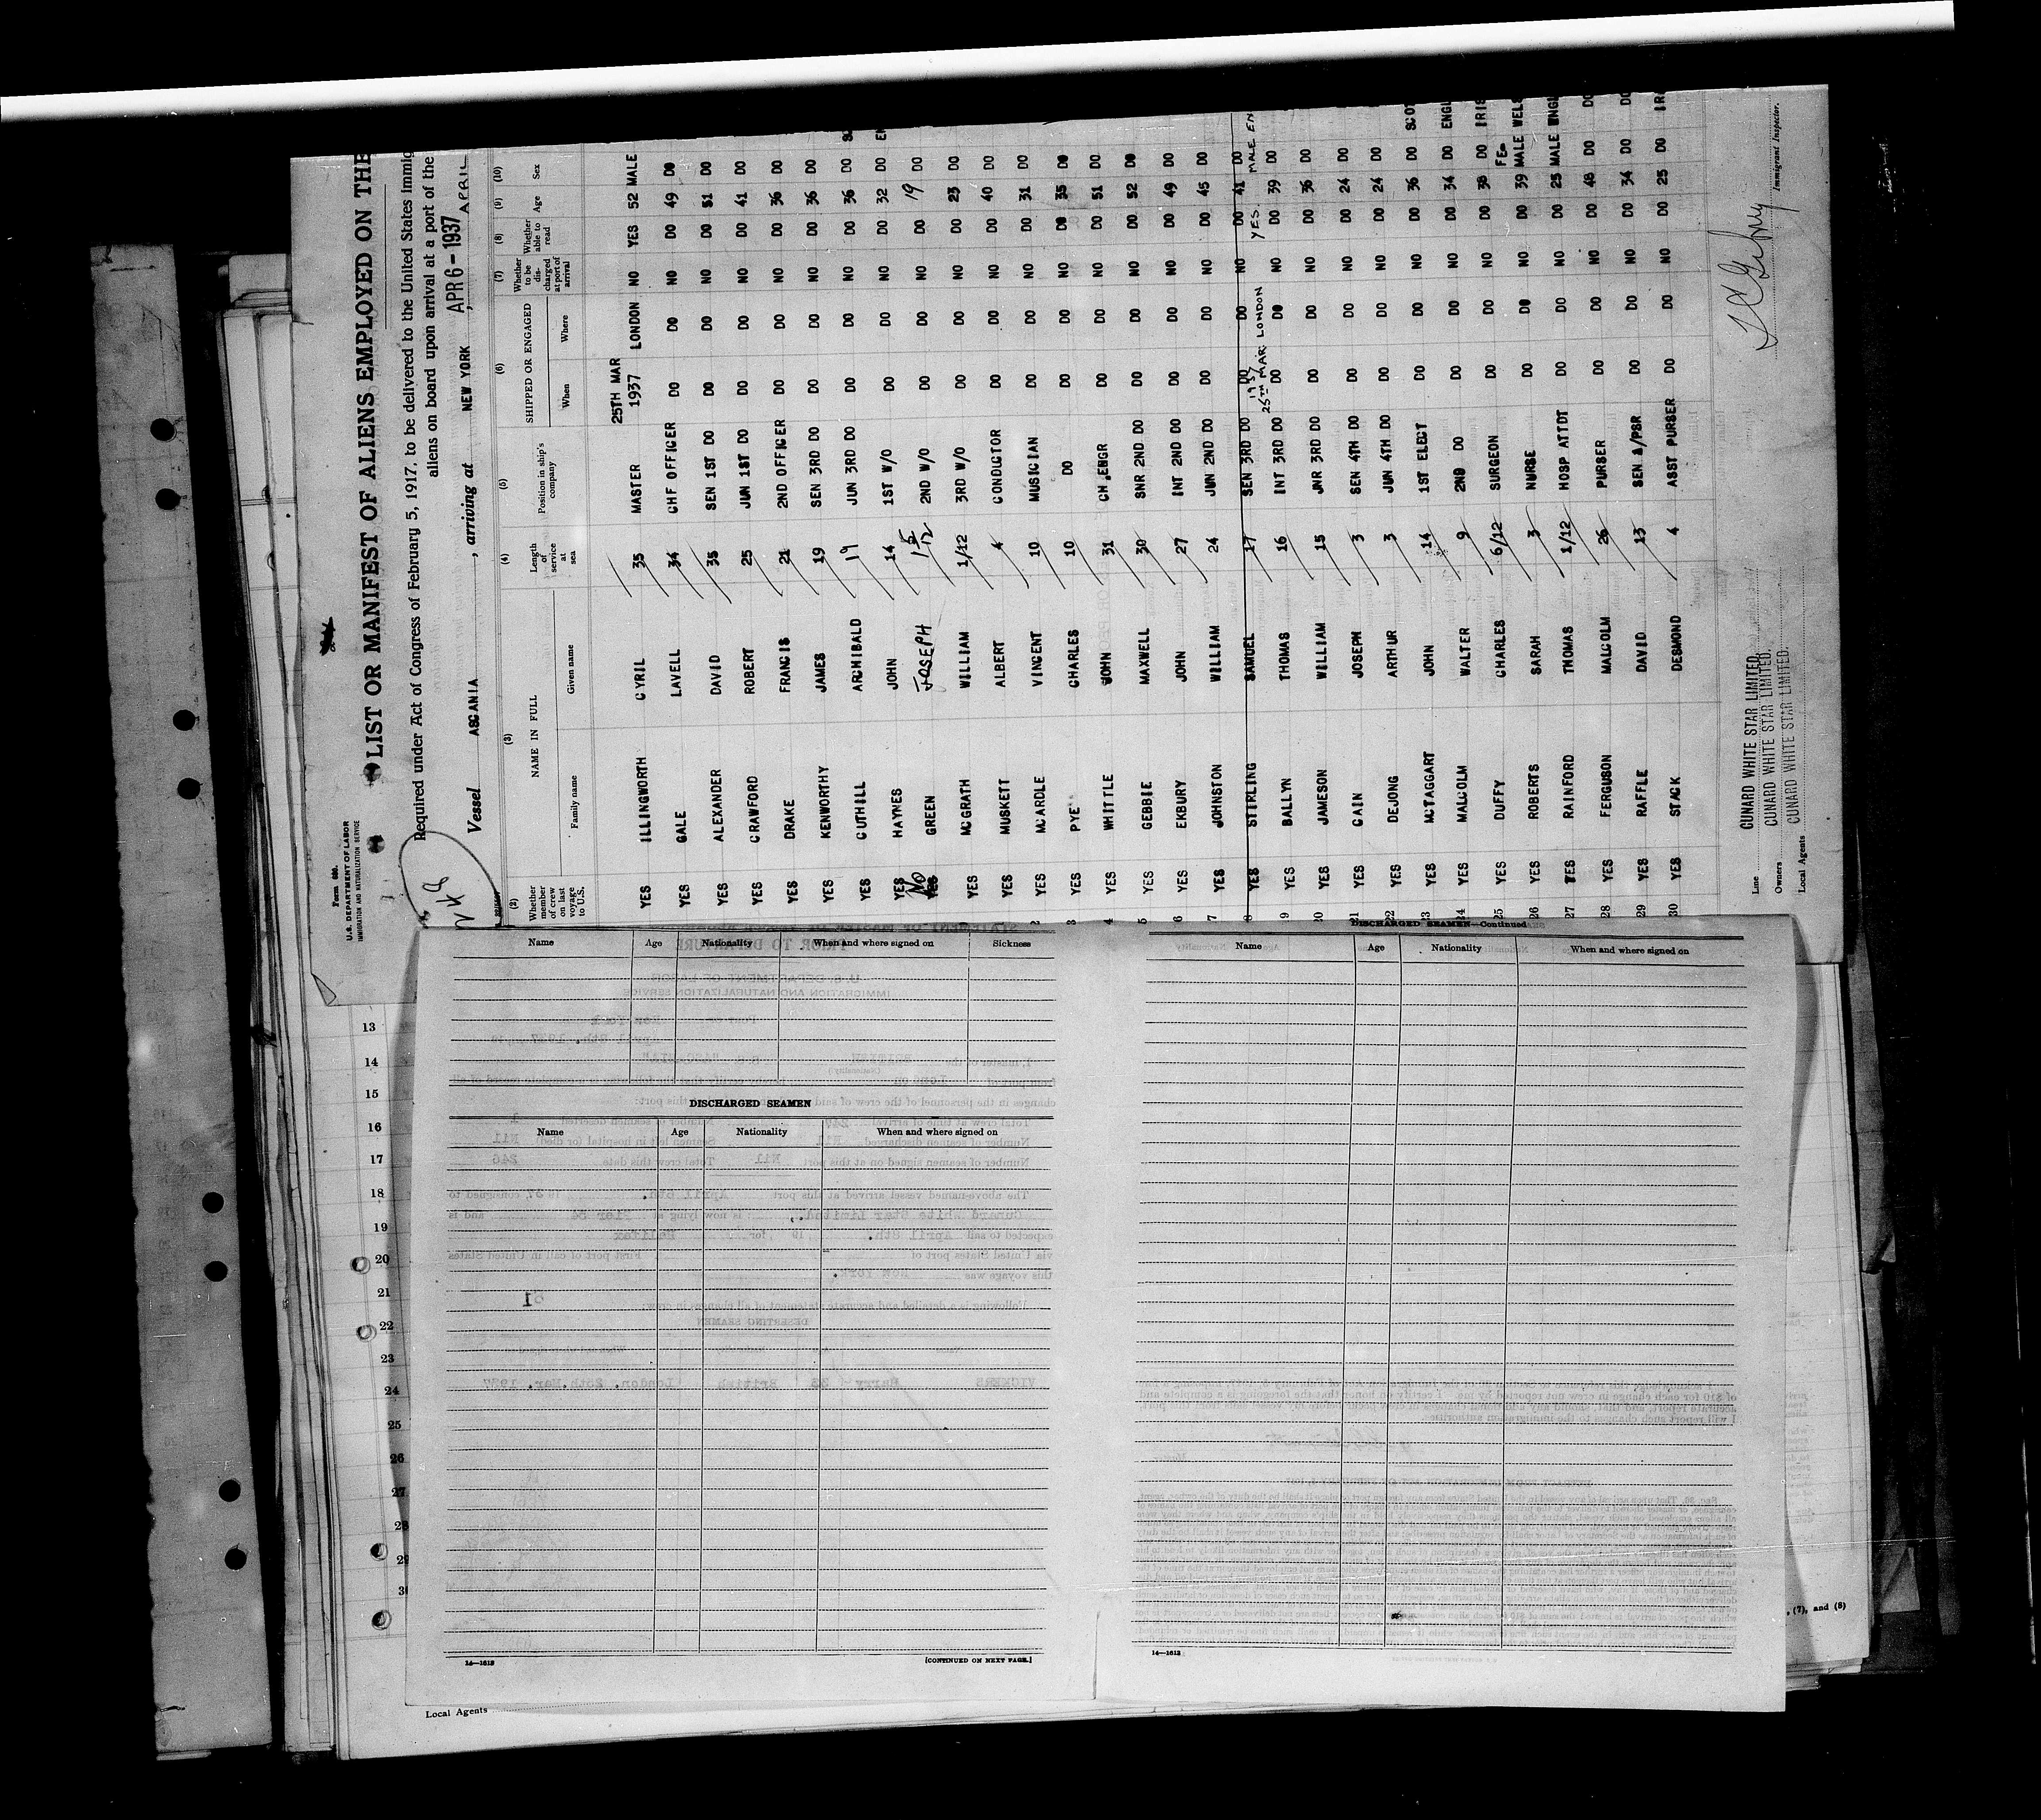 Form 680.
U.S. DEPARTMENT OF LABOR
IMMIGRATION AND NATURALIZATION SERVICE
LIST OR MANIFEST OF ALIENS EMPLOYED ON THE
Required under Act of Congress of February 5, 1917, to be delivered to the United States Immig
aliens on board upon arrival at a port of the
Vessel ASCANIA, arriving at NEW YORK, APR 6 - 1937 APRIL
(2) (3) (4) (5) (6) (7) (8) (9) (10)
Whether member of crew on last voyage to U.S. NAME IN FULL Family name Given name Length of service at sea Position in ship's company SHIPPED OR ENGAGED When Where Whether to be discharged at port of arrival Whether able to read Age Sex
25TH MAR
YES ILLINGWORTH CYRIL 35 MASTER 1937 LONDON NO YES 52 MALE
YES GALE LAVELL 34 CHF OFFICER DO DO NO DO 49 DO
YES ALEXANDER DAVID 35 SEN 1ST DO DO DO NO DO 51 DO
YES CRAWFORD ROBERT 25 JUN 1ST DO DO DO NO DO 41 DO
YES DRAKE FRANCIS 21 2ND OFFICER DO DO NO DO 36 DO
YES KENWORTHY JAMES 19 SEN 3RD DO DO DO NO DO 36 DO
YES CUTHILL ARCHIBALD 19 JUN 3RD DO DO DO NO DO 36 DO
YES HAYNES JOHN 14 1ST W/O DO DO NO DO 32 DO
NO GREEN JOSEPH 1 5/12 2ND W/O DO DO NO DO 19 DO
YES MCGRATH WILLIAM 1/12 3RD W/O DO DO NO DO 23 DO
YES MUSKETT ALBERT 4 CONDUCTOR DO DO NO DO 40 DO
2 YES MCARDLE VINCENT 10 MUSICIAN DO DO NO DO 31 DO
3 YES PYE CHARLES 10 DO DO DO NO DO 35 DO
4 YES WHITTLE JOHN 31 CH.ENGR DO DO NO DO 51 DO
5 YES GEBBIE MAXWELL 30 SNR 2ND DO DO DO NO DO 52 DO
6 YES EKBURY JOHN 27 INT 2ND DO DO DO NO DO 49 DO
7 YES JOHNSTON WILLIAM 24 JUN 2ND DO DO DO NO DO 45 DO
8 YES STIRLING SAMUEL 17 SEN 3RD DO DO DO NO DO 41 DO
1937 25TH MAR. LONDON YES. MALE EN
9 YES BALLYN THOMAS 16 INT 3RD DO DO DO NO DO 39 DO
20 YES JAMESON WILLIAM 15 JNR 3RD DO DO DO NO DO 36 DO
21 YES CAIN JOSEPH 3 SEN 4TH DO DO DO NO DO 24 DO
22 YES DEJONG ARTHUR 3 JUN 4TH DO DO DO NO DO 24 DO
23 YES MCTAGGART JOHN 14 1ST ELECT DO DO NO DO 36 DO SCOT
24 YES MALCOLM WALTER 9 2ND DO DO DO NO DO 34 DO ENGL
25 YES DUFFY CHARLES 6/12 SURGEON DO DO NO DO 38 DO IRIS
26 YES ROBERTS SARAH 3 NURSE DO DO NO DO 39 FE= MALE WELS
27 YES RAINFORD THOMAS 1/12 HOSP ATTDT DO DO NO DO 25 MALE ENGL
28 YES FERGUSON MALCOLM 26 PURSER DO DO NO DO 48 DO DO
29 YES RAFFLE DAVID 13 SEN A/PSR DO DO NO DO 34 DO DO
30 YES STACK DESMOND 4 ASST PURSER DO DO NO DO 25 DO IR
Line CUNARD WHITE STAR LIMITED.
Owners CUNARD WHITE STAR LIMITED.
Local Agents CUNARD WHITE STAR LIMITED.
Immigrant Inspector.
Name Age Nationality When and where signed on Sickness
DISCHARGED SEAMEN
Name Age Nationality When and where signed on
14—1613
[CONTINUED ON NEXT PAGE.]
DISCHARGED SEAMEN—Continued
Name Age Nationality When and where signed on
14—1613
13
14
15
16
17
18
19
20
21
22
23
24
25
26
27
28
29
Local Agents
, (7), and (8)